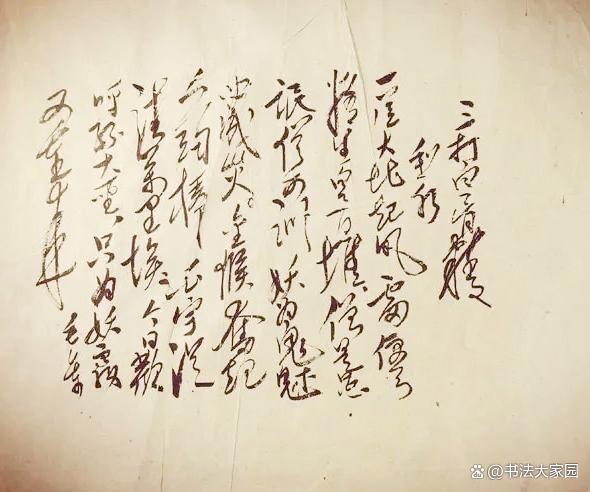 三打白骨精
一从大地起风雷便有
精生白骨堆僧是愚
可训妖为鬼魅
必成灾金猴奋起
千钧棒玉宇澄
清万里埃今日欢
呼孙大圣只为妖雾
又重来
书法大家园